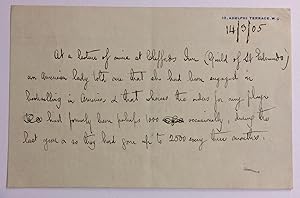 10, ADELPHI TERRACE, W.C.
14/3/05
At a lecture of mine at Clifford's Inn (Guild of St Edmund)
an American lady told me that she had been engaged in
bookselling in America & that whereas the orders for my plays
had formerly been perhaps 1000 occasionally, during the
last year or so they had gone up to 2500 every three months.